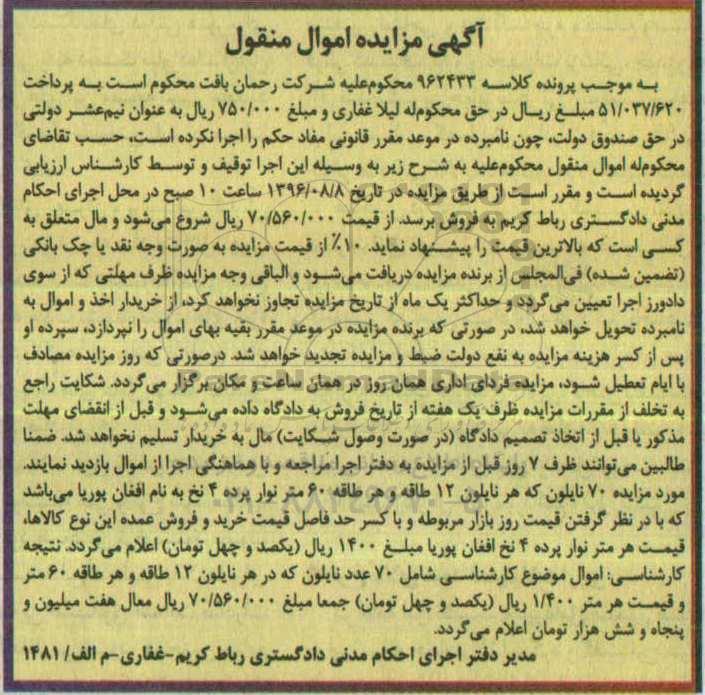 آگهی مزایده اموال منقول
به موجب پرونده کلاسه ۹۶۲۴۳۳ محکوم‌علیه شرکت رحمان بافت محکوم است به پرداخت
۵۱/۰۳۷/۶۲۰ مبلغ ریال در حق محکوم‌له لیلا غفاری و مبلغ ۷۵۰/۰۰۰ ریال به عنوان نیم‌عشر دولتی
در حق صندوق دولت، چون نامبرده در موعد مقرر قانونی مفاد حکم را اجرا نکرده است، حسب تقاضای
محکوم‌له اموال منقول محکوم‌علیه به شرح زیر به وسیله این اجرا توقیف و توسط کارشناس ارزیابی
گردیده است و مقرر است از طریق مزایده در تاریخ ۱۳۹۶/۰۸/۸ ساعت ۱۰ صبح در محل اجرای احکام
مدنی دادگستری رباط کریم به فروش برسد. از قیمت ۷۰/۵۶۰/۰۰۰ ریال شروع می‌شود و مال متعلق به
کسی است که بالاترین قیمت را پیشنهاد نماید. ۱۰٪ از قیمت مزایده به صورت وجه نقد یا چک بانکی
(تضمین شده) فی‌المجلس از برنده مزایده دریافت می‌شود و الباقی وجه مزایده ظرف مهلتی که از سوی
دادورز اجرا تعیین می‌گردد و حداکثر یک ماه از تاریخ مزایده تجاوز نخواهد کرد، از خریدار اخذ و اموال به
نامبرده تحویل خواهد شد، در صورتی که برنده مزایده در موعد مقرر بقیه بهای اموال را نپردازد، سپرده او
پس از کسر هزینه مزایده به نفع دولت ضبط و مزایده تجدید خواهد شد. درصورتی که روز مزایده مصادف
با ایام تعطیل شود، مزایده فردای اداری همان روز در همان ساعت و مکان برگزار می‌گردد. شکایت راجع
به تخلف از مقررات مزایده ظرف یک هفته از تاریخ فروش به دادگاه داده می‌شود و قبل از انقضای مهلت
مذکور یا قبل از اتخاذ تصمیم دادگاه (در صورت وصول شکایت) مال به خریدار تسلیم نخواهد شد. ضمنا
طالبین می‌توانند ظرف ۷ روز قبل از مزایده به دفتر اجرا مراجعه و با هماهنگی اجرا از اموال بازدید نمایند.
مورد مزایده ۷۰ نایلون که هر نایلون ۱۲ طاقه و هر طاقه ۶۰ متر نوار پرده ۴ نخ به نام افغان پوریا می‌باشد
که با در نظر گرفتن قیمت روز بازار مربوطه و با کسر حد فاصل قیمت خرید و فروش عمده این نوع کالاها،
قیمت هر متر نوار پرده ۴ نخ افغان پوریا مبلغ ۱۴۰۰ ریال (یکصد و چهل تومان) اعلام می‌گردد. نتیجه
کارشناسی: اموال موضوع کارشناسی شامل ۷۰ عدد نایلون که در هر نایلون ۱۲ طاقه و هر طاقه ۶۰ متر
و قیمت هر متر ۱/۴۰۰ ریال (یکصد و چهل تومان) جمعا مبلغ ۷۰/۵۶۰/۰۰۰ ریال معال هفت میلیون و
پنجاه و شش هزار تومان اعلام می‌گردد.
مدیر دفتر اجرای احکام مدنی دادگستری رباط کریم-غفاری-م الف/ ۱۴۸۱